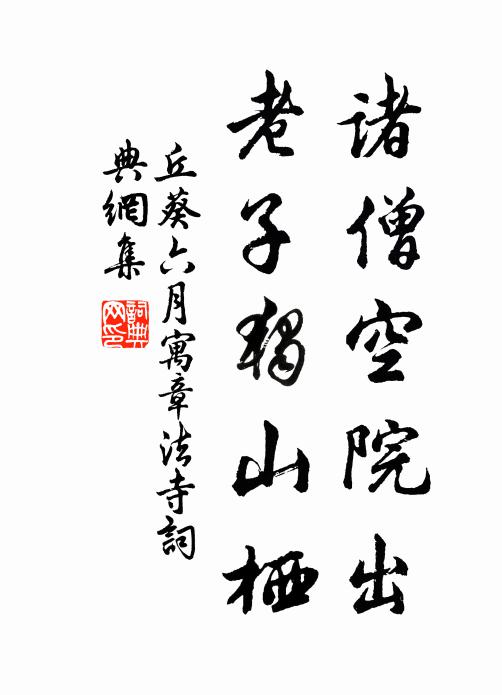 諸僧空院出
老子獨山栖
丘葵六月寓章法寺詞
典網集
詞典網印